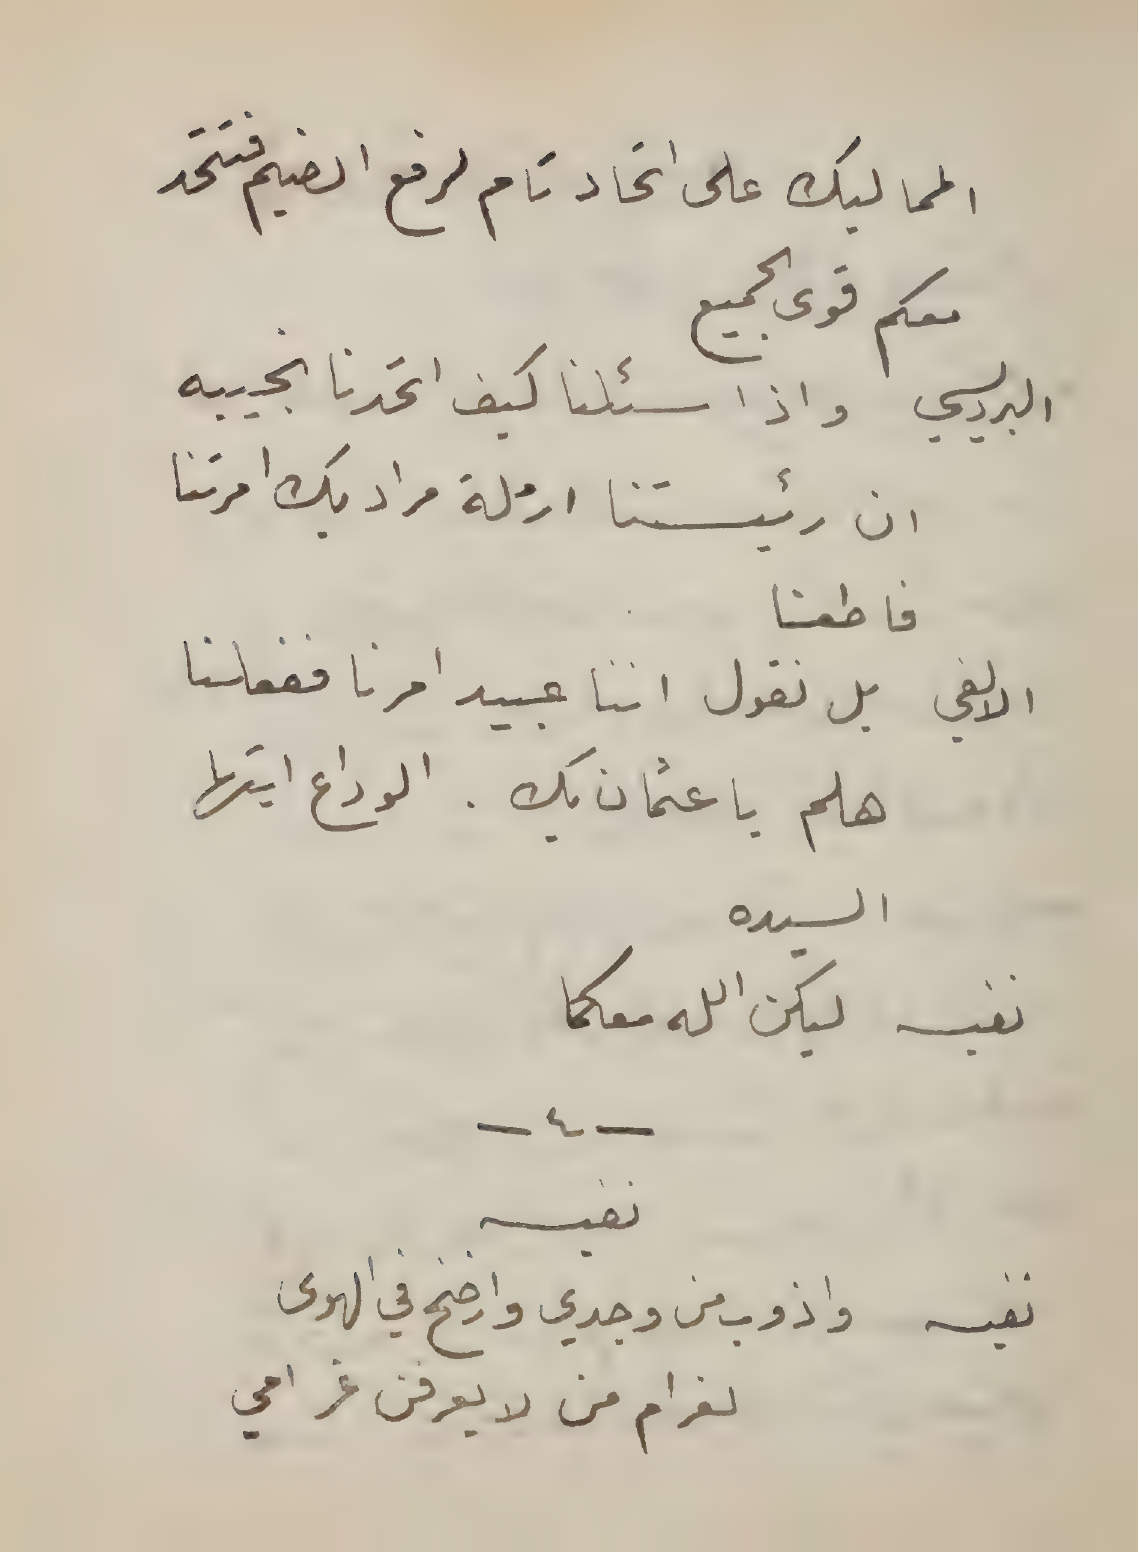 المماليك على اتحاد تام لرفع الضيم فتتحد
معكم قوى الجميع
البرديسي واذا سئلنا كيف اتحدنا نجيبه
ان رئيستنا ارملة مراد بك امرتنا
فاطعنا
الالفي بل نقول اننا عبيد امرنا ففعلنا
هلم يا عثمان بك . الوداع ايتها
السيده
نفيسه ليكن الله معكما
— ٤ —
نفيسه
نفيسه واذوب من وجدي وارضخ في الهوى
لغرام من لا يعرفن غرامي